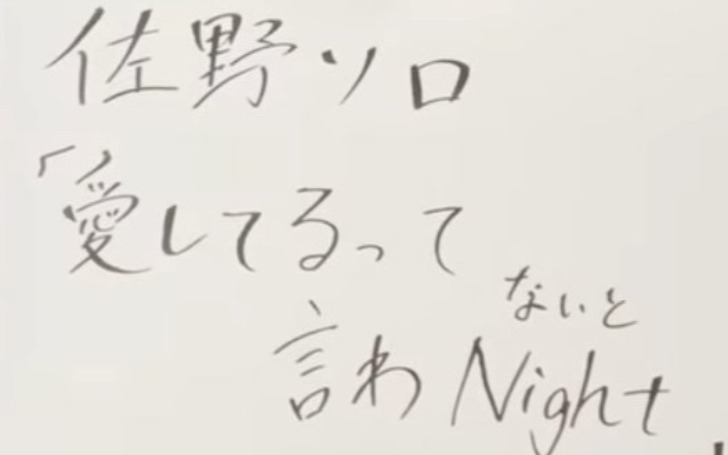 佐野ソロ
「愛してるって
ないと
言わNight